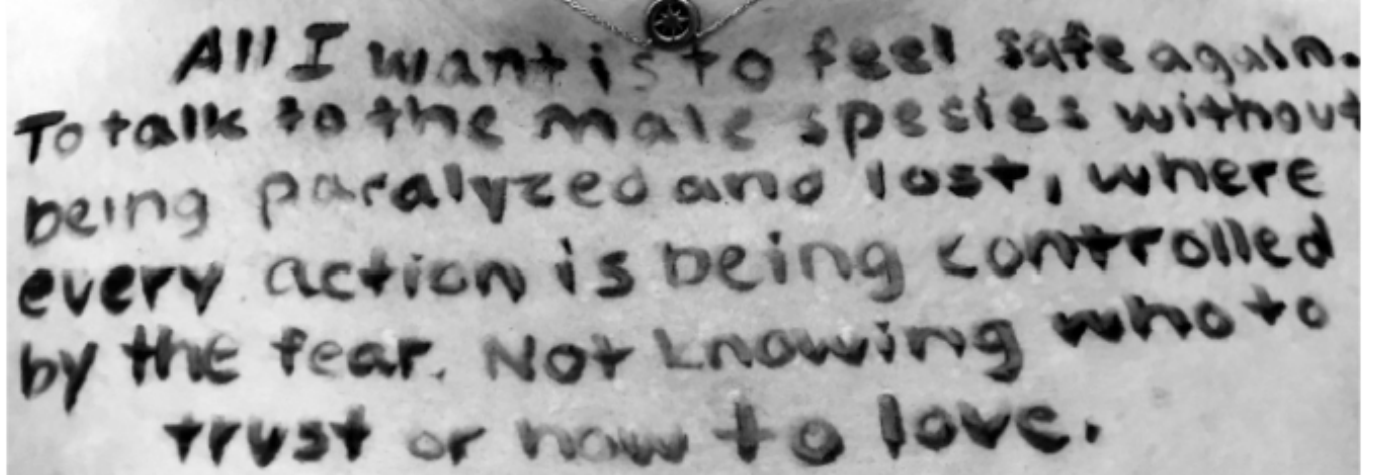 All I want is to feel safe again.
To talk to the male species without
being paralyzed and lost, where
every action is being controlled
by the fear. Not knowing who to
trust or how to love.